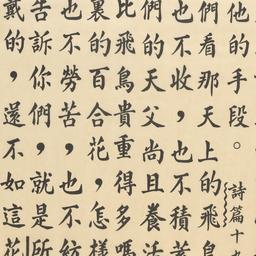 他的手段。詩篇十九
們看那天上的飛鳥
也不收，也不積蓄
們的天父尚且養活
比飛鳥貴重得多嗎
裏的百合花，怎樣
也不勞苦，也不紡
告訴你們，就是所
戴的，還不如這花